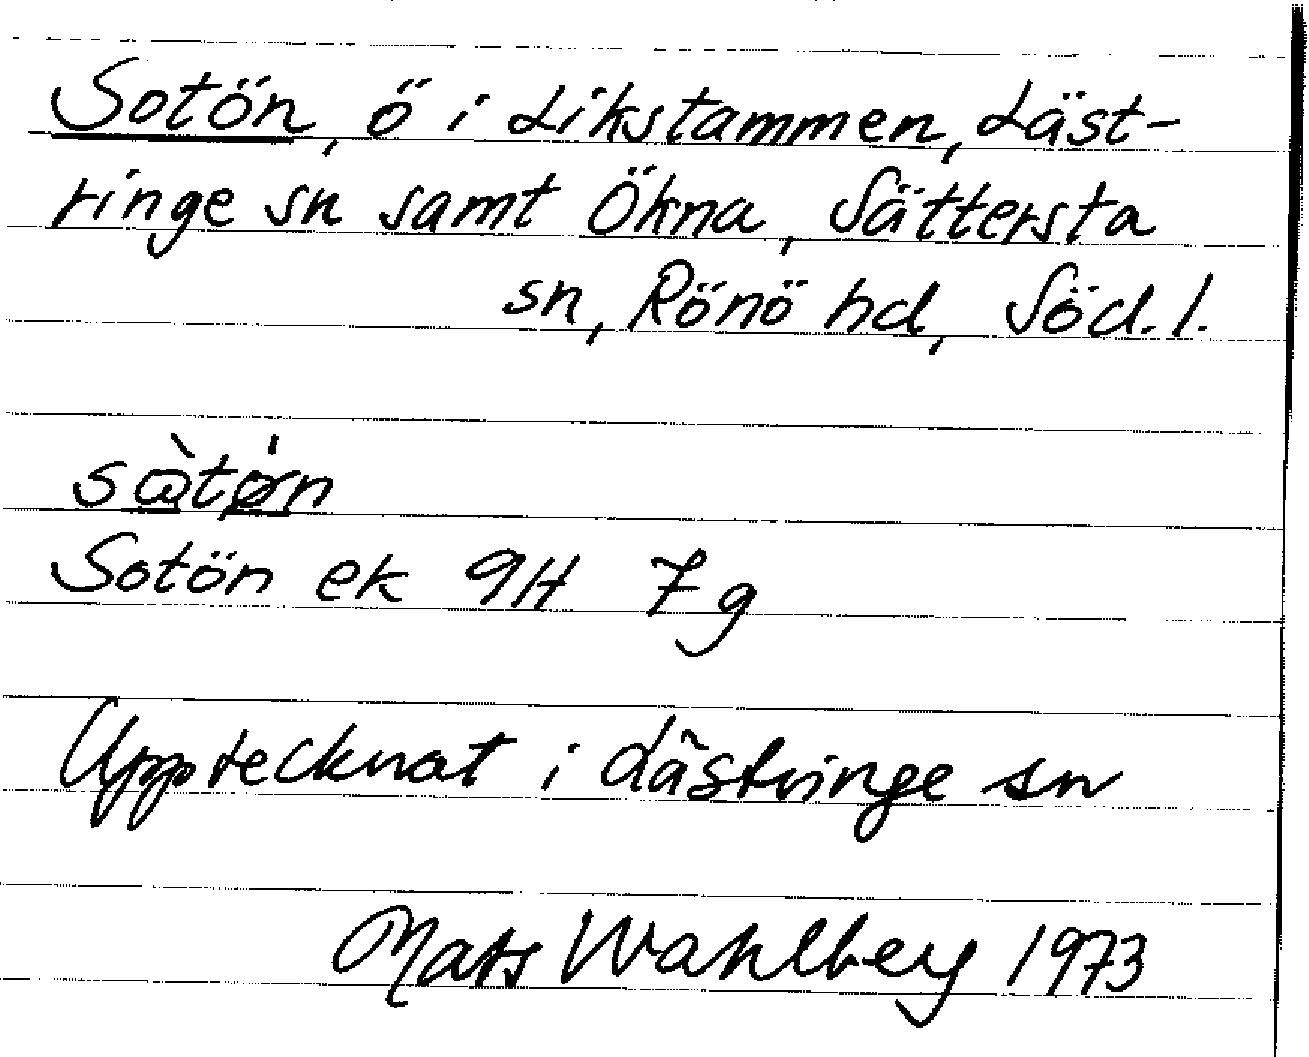 Sotön, ö i Likstammen, Läst-
ringe sn samt Ökna, Sättersta
sn, Rönö hd, Söd. l.
Sotön ek 9H 7g
Upptecknat i Lästringe sn
Mats Wahlberg 1973